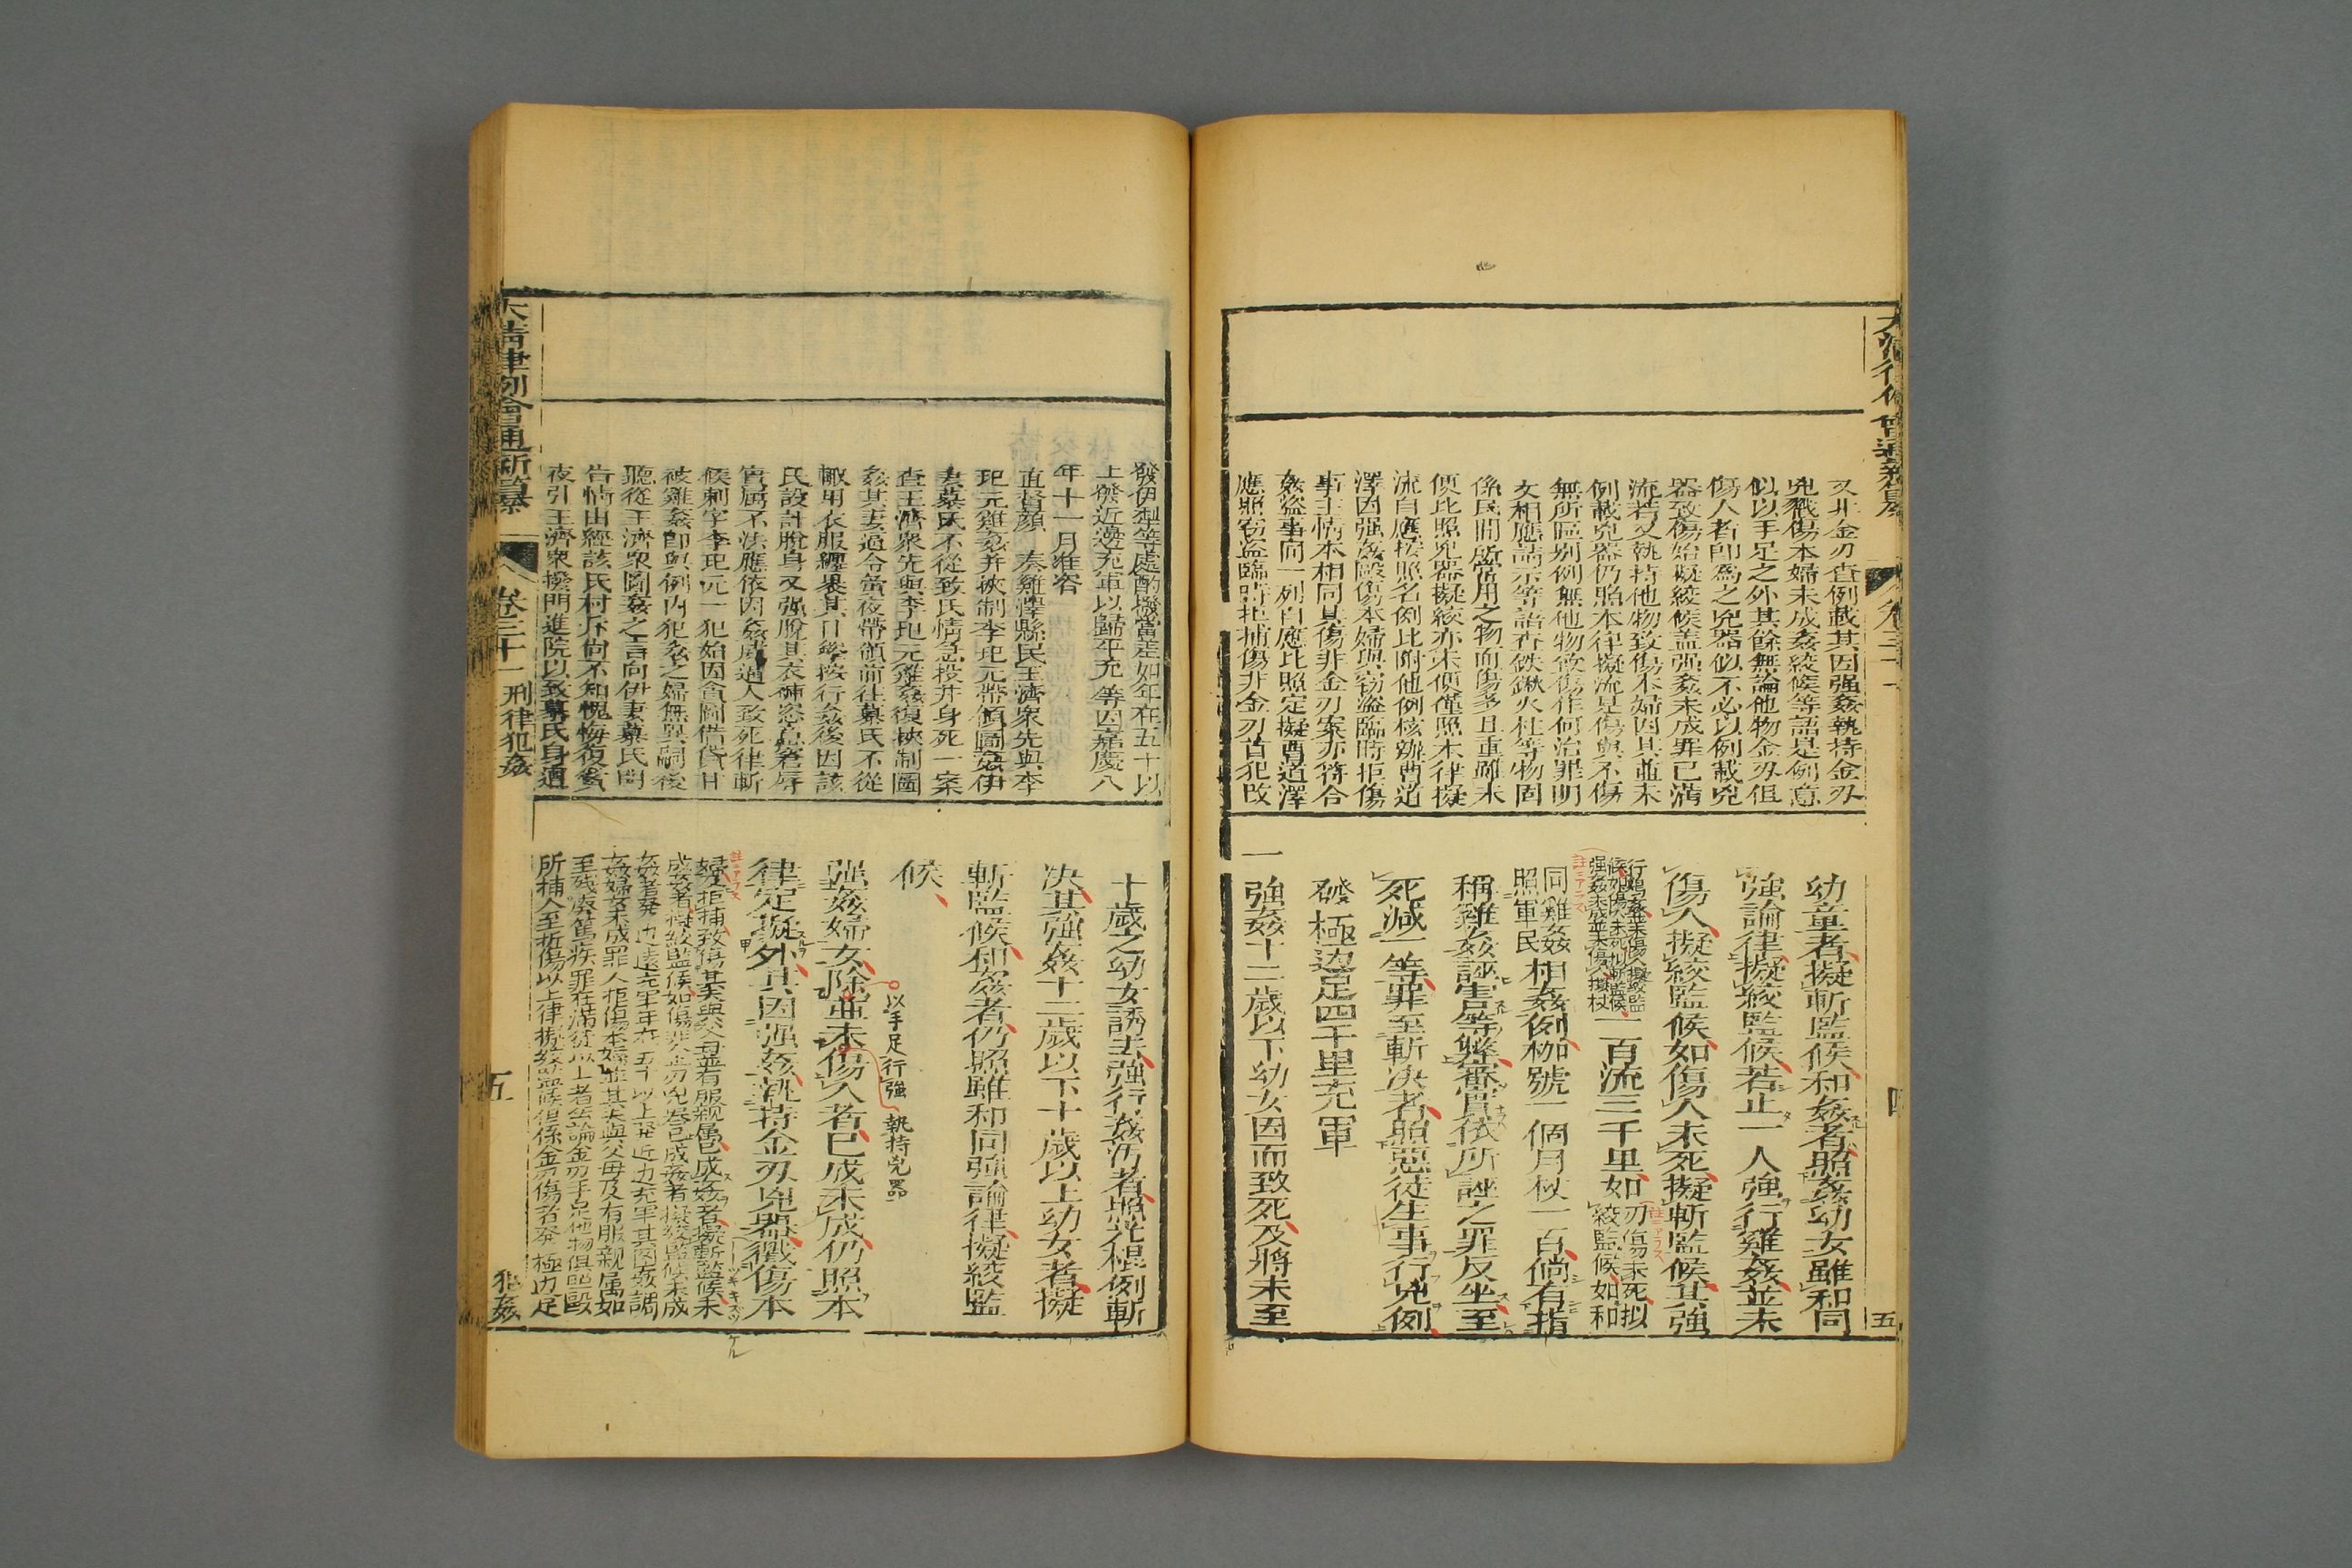 又非金刃查例載其因强姦執持金刃
兇戮傷本婦未成姦絞候等語是例意
似以手足之外其餘無論他物金刃但
傷人者即為之兇器似不必以例載兇
器致傷始擬絞候盖强姦未成罪已滿
流若又執持他物致傷本婦因其並未
例載兇器仍照本律擬流是傷與不傷
無所區别例無他物致傷作何治罪明
文相應請示等語查鉄鍬火柱等物固
係民間所常用之物而傷多且重雖未
便比照兇器擬絞亦未便僅照本律擬
流自應按照名例比附他例核辦曹道
澤因强姦毆傷本婦與窃盗臨時拒傷
事主情本相同其傷非金刃案亦符合
姦盗事同一列自應比照定擬曹道澤
應照窃盗臨時拒捕傷非金刃首犯改
幼童者擬斬監候和姦者照姦幼女雖和同
強論律擬絞監候若止一人強行雞姦並未
傷人擬絞監候如傷人未死擬斬監候其強
行雞姦並未傷人擬絞監
候如傷人未死擬斬監候
强姦未成並未傷人擬杖
一百流三千里如
刃傷未死拟
絞監候如和
同雞姦
照軍民
相姦例枷號一個月杖一百倘有指
稱雞姦誣害等弊審實依所誣之罪反坐至
死減一等罪至斬决者照惡徒生事行兇例
發極边足四千里充軍
一強姦十二歲以下幼女因而致死及將未至
大清律例會通新纂
卷三十一
四
五
發伊犁等處酌撥當差如年在五十以
上發近邊充軍以歸平允等因嘉慶八
年十一月准咨
直督顔 奏雞澤縣民王濟衆先與李
玘元雞姦并被制李玘元帶領圖姦伊
妻慕氏不從致氏情急投井身死一案
查王濟衆先與李玘元雞姦復挾制圖
姦其妻逼令當夜帶領前往慕氏不從
輙用衣服纒裹其口繆按行姦後因該
氏設計脫身又强脫其衣褲恣意窘辱
實属不法應依因姦威逼人致死律斬
候刺字李玘元一犯始因貪圖借貸甘
被雞姦卽與例内犯姦之婦無異嗣後
聽從王濟衆圖姦之言向伊妻慕氏問
告情由經該氏村斥尚不知愧悔復黃
夜引王濟衆撥門進院以致慕氏身遭
十歲之幼女誘去強行姦汚者照光棍例斬
决其強姦十二歲以下十歲以上幼女者擬
斬監候和姦者仍照雖和同強論律擬絞監
候
以手足行強
執持兇器
强姦婦女除並未傷人者已成未成仍照本
律定擬外其因强姦執持金刃兇器戳傷本
ツキキズツケル
婦及拒捕致傷其夫與父母並有服親属已成姦者擬斬監候未
成姦者擬絞監候如傷非金刃兇器已成姦者擬絞監候未成
姦者發边遠充軍年在五十以上發近边充軍其圖姦調
姦婦女未成罪人拒傷本婦並其夫與父母及有服親属如
至殘廢篤疾罪在滿徒以上者無論金刃手足他物俱照毆
所捕人至折傷以上律擬絞監候但係金刃傷者發極边足
大清律例會通新纂
卷三十一 刑律犯姦
五
犯姦